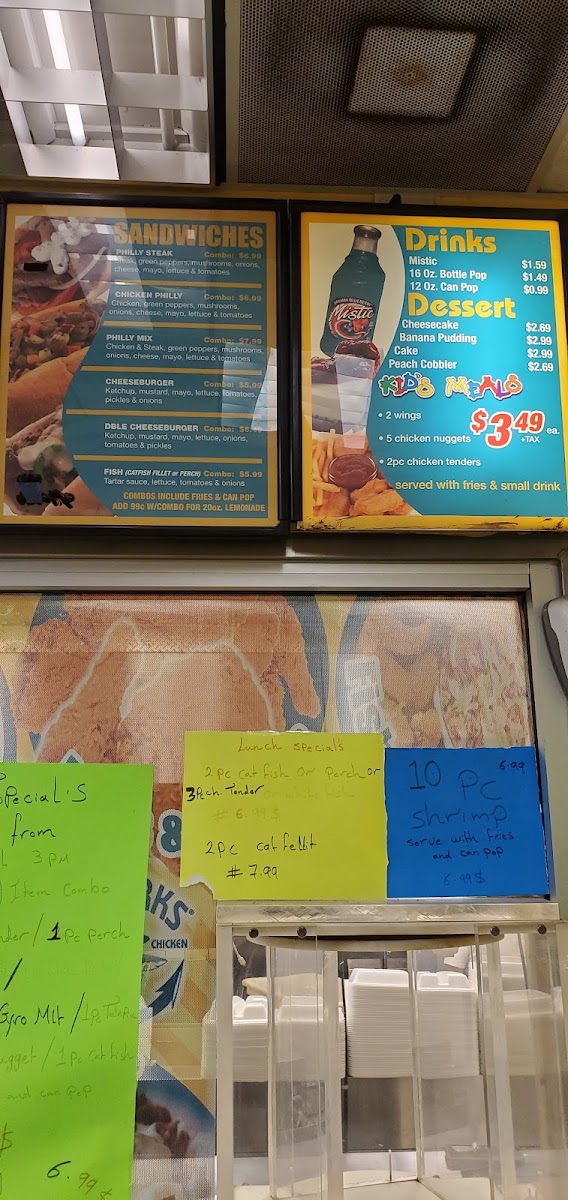 SANDWICHES
PHILLY STEAK Combo: $6.99
Steak, green peppers, mushrooms, onions,
cheese, mayo, lettuce & tomatoes
CHICKEN PHILLY Combo: $6.99
Chicken, green peppers, mushrooms,
onions, cheese, mayo, lettuce & tomatoes
PHILLY MIX Combo: $7.99
Chicken & Steak, green peppers, mushrooms,
onions, cheese, mayo, lettuce & tomatoes
CHEESEBURGER Combo: $5.99
Ketchup, mustard, mayo, lettuce, tomatoes,
pickles & onions
DBLE CHEESEBURGER Combo:
Ketchup, mustard, mayo, lettuce, onions,
tomatoes & pickles
FISH (CATFISH FILLET or PERCH) Combo: $5.99
Tartar sauce, lettuce, tomatoes & onions
COMBOS INCLUDE FRIES & CAN POP
ADD 99c W/COMBO FOR 20oz. LEMONADE
Mistic
Drinks
Mistic $1.59
16 Oz. Bottle Pop $1.49
12 Oz. Can Pop $0.99
Dessert
Cheesecake $2.69
Banana Pudding $2.99
Cake $2.99
Peach Cobbler $2.69
KID'S MEALS
• 2 wings
• 5 chicken nuggets
• 2pc chicken tenders
$3.49 ea.
+TAX
served with fries & small drink
Special's
from
3 PM
Item Combo
/ 1 Pc Perch
/
Gyro Mlt /
/ 1 Pc Cat fish
and can pop
6.99 $
Lunch special's
2 pc cat fish or Perch or
3 Pc h. Tender or white fish
# 6.99 $
2 pc cat fellit
# 7.99
10 Pc 6.99
shrimp
serve with fries
and can pop
6.99 $
&
RKS®
CHICKEN